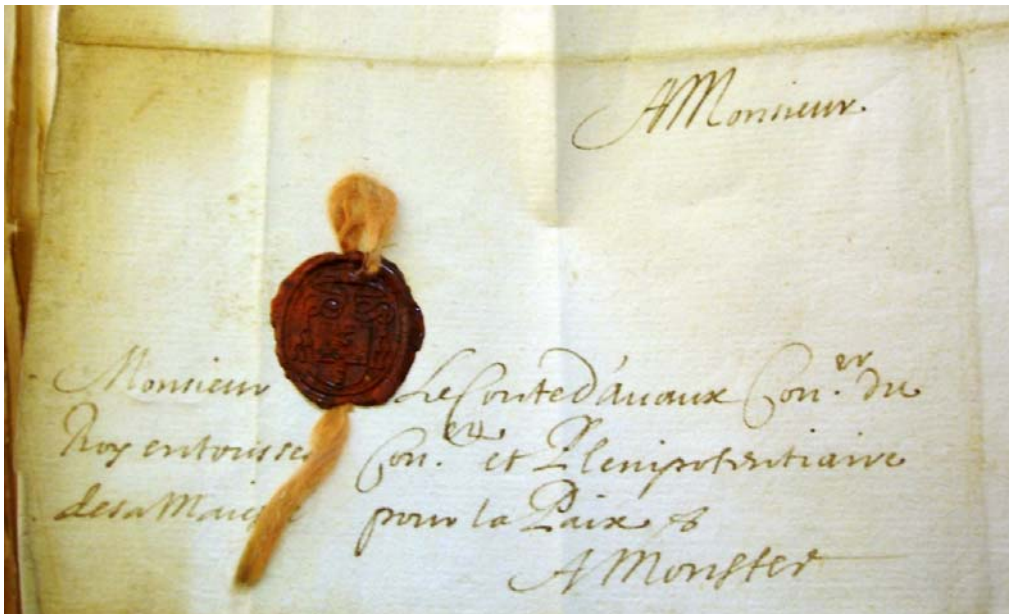 A Monsieur
Monsieur Le Conte d'avaux Con.er du
Roy en tous ses Con.ls et Plenipotentiaire
de sa Maiesté pour la Paix
A Monster